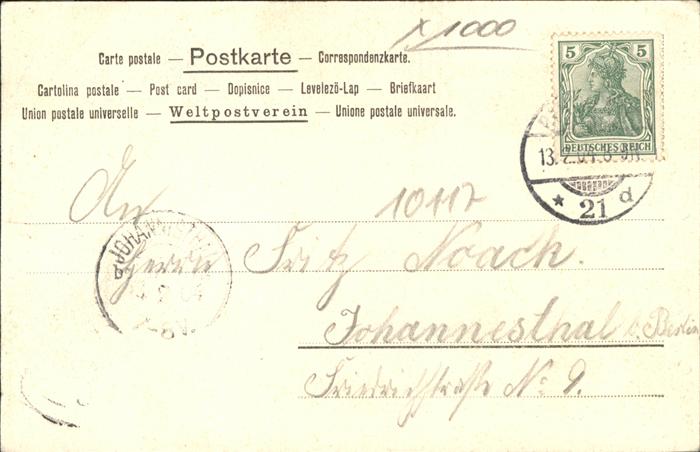 x 1000
Carte postale — Postkarte — Correspondenzkarte.
Cartolina postale — Post card — Dopisnice — Levelező-Lap — Briefkaart
Union postale universelle — Weltpostverein — Unione postale universale.
5 5
DEUTSCHES REICH
13.2.04.
* 21 d
An
10117
JOHANNIS
Herrn Fritz Noack.
Johannesthal b. Berlin
Friedrichstraße No 9.